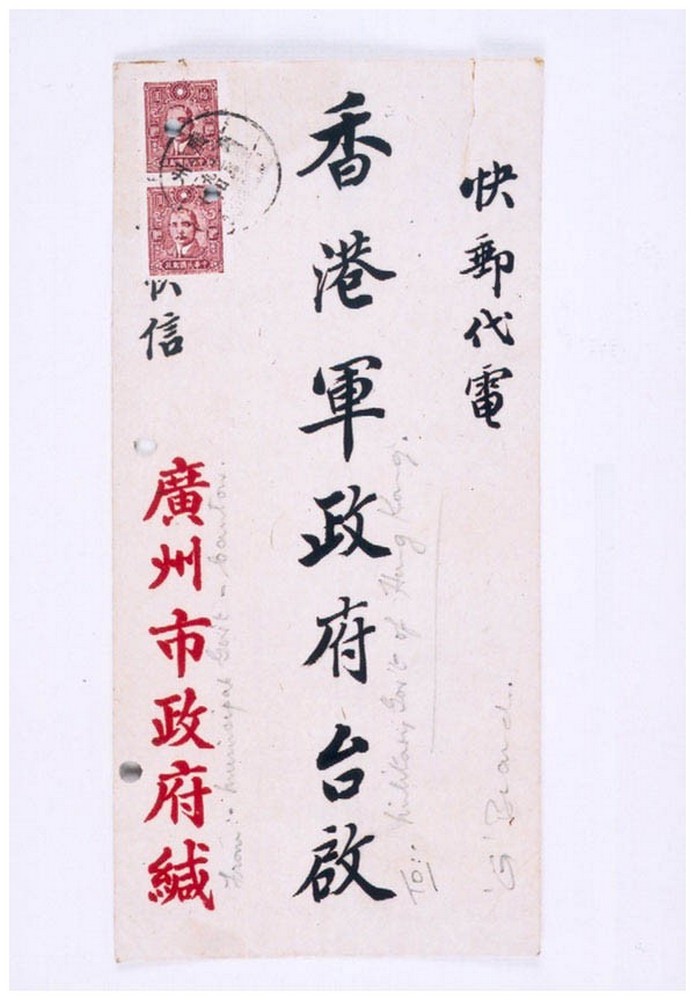 快郵代電
香港軍政府台啟
快信
廣州市政府緘
'G' Board.
To:- Military Gov't of Hong Kong.
From:- Municipal Gov't - Canton.